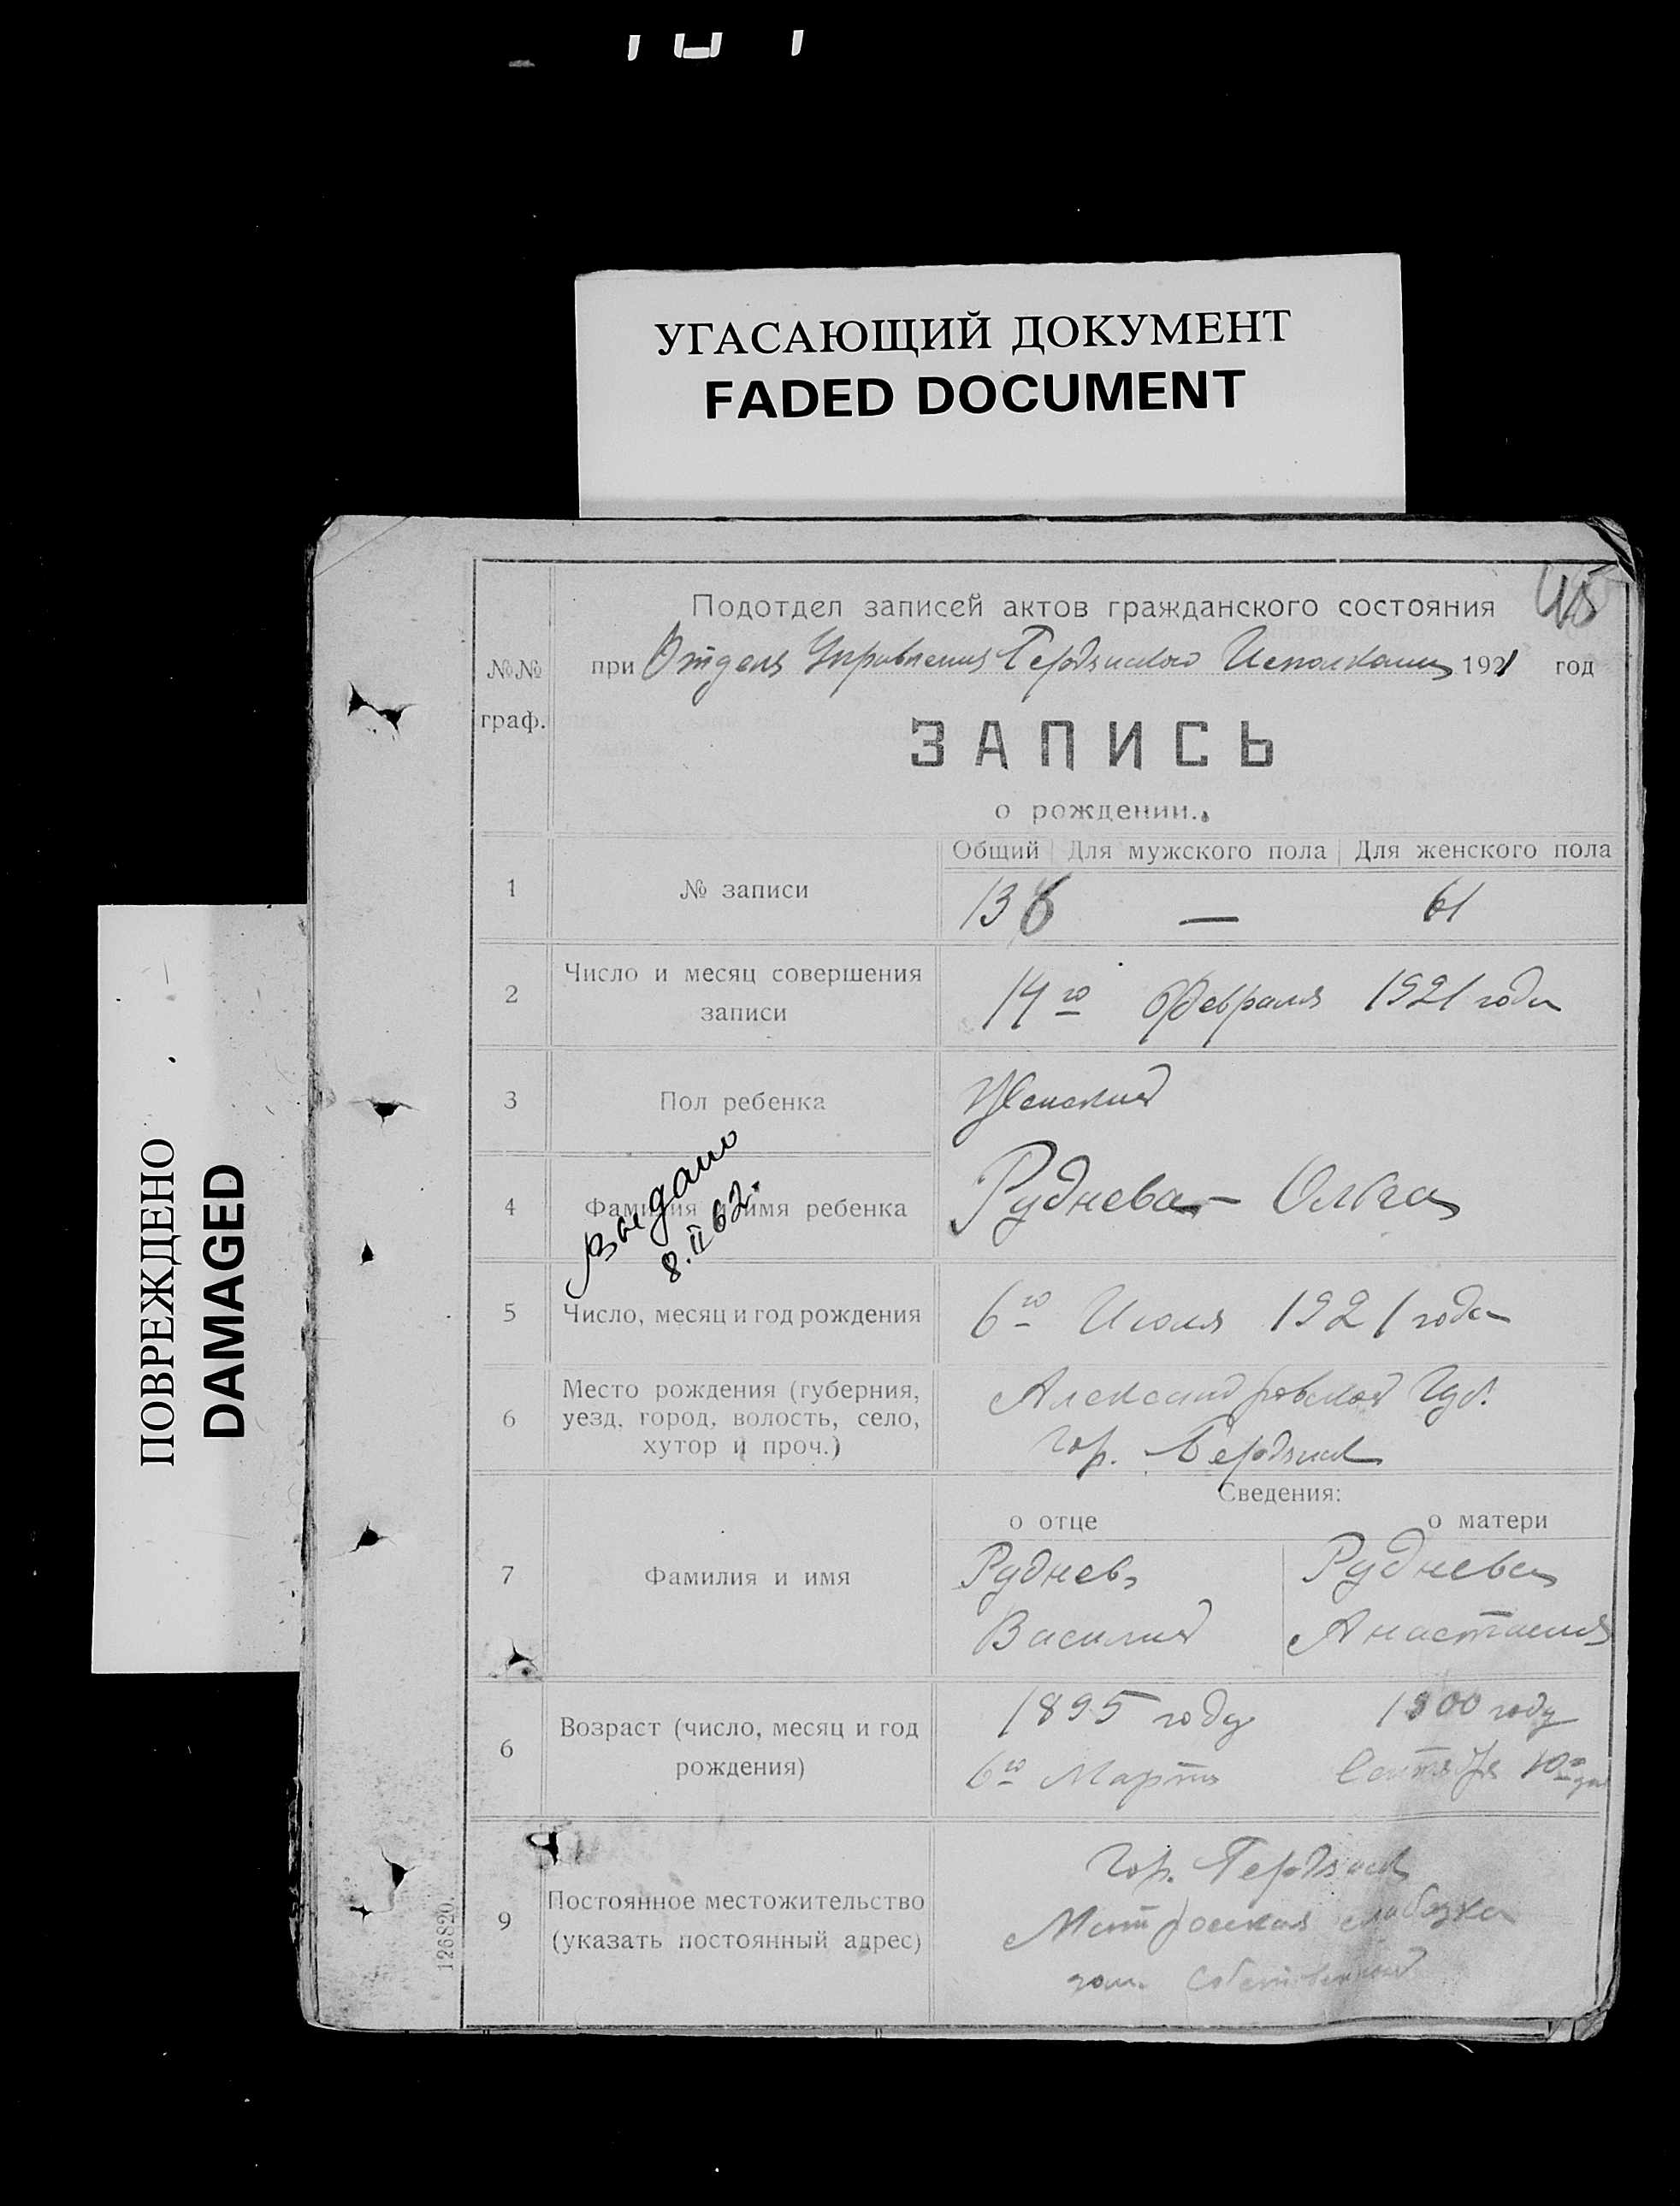 УГАСАЮЩИЙ ДОКУМЕНТ
FADED DOCUMENT
ПОВРЕЖДЕНО
DAMAGED
45
Подотдел записей актов гражданского состояния
№№ граф.
при Отделе Управления Бердянского Исполкома 1921 год
ЗАПИСЬ
о рождении.
Общий Для мужского пола Для женского пола
1 № записи 136 — 61
2 Число и месяц совершения записи 14го Февраля 1921 года
3 Пол ребенка Женский
4 Фамилия и имя ребенка Руднева - Ольга
Выдано
8.II 62.
5 Число, месяц и год рождения 6го Июля 1921 года
6 Место рождения (губерния, Александровской Губ.
уезд, город, волость, село, гор. Бердянск
хутор и проч.)
Сведения:
о отце о матери
7 Фамилия и имя Руднев Руднева
Василий Анастасия
6 Возраст (число, месяц и год 1895 году 1900 году
рождения) 6го Марта Сентября 10го
9 Постоянное местожительство гор. Бердянск
(указать постоянный адрес) Матросская слабодка
дом собственный
126820.